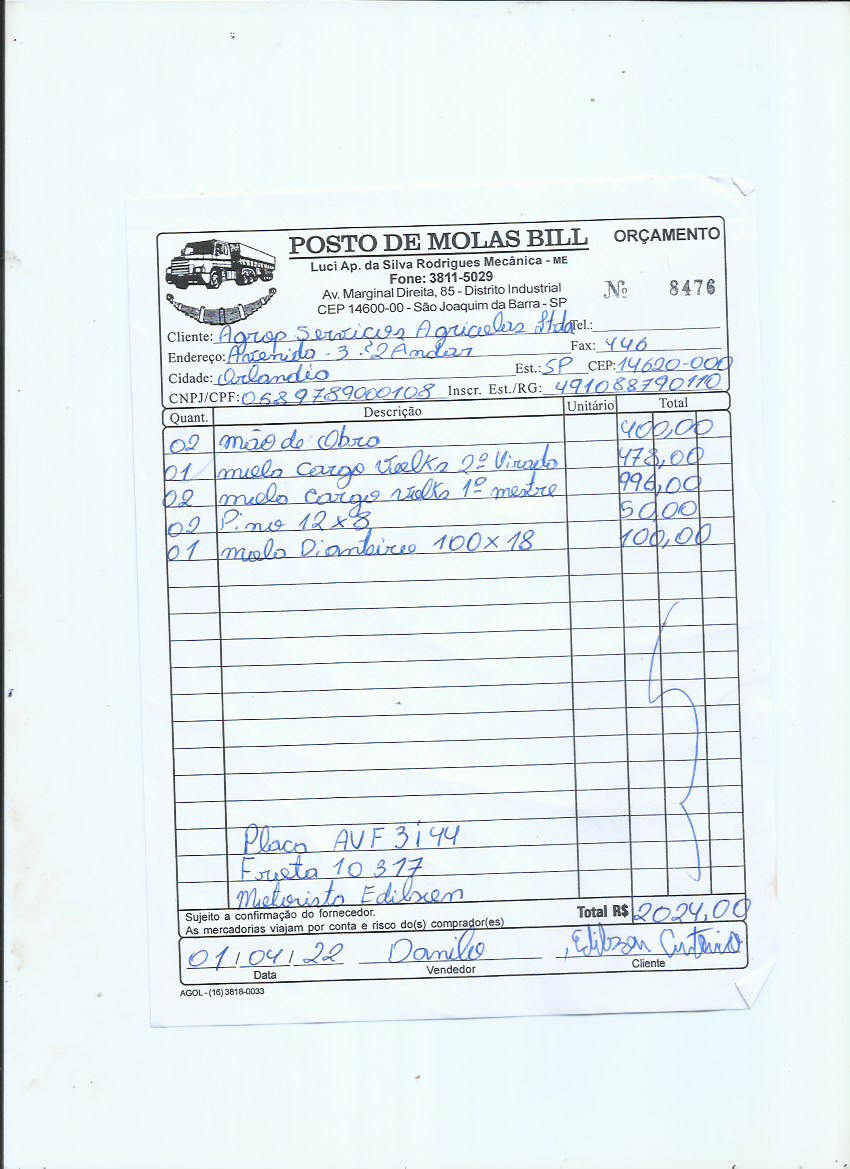 POSTO DE MOLAS BILL
ORÇAMENTO
Luci Ap. da Silva Rodrigues Mecânica - ME
Fone: 3811-5029
Av. Marginal Direita, 85 - Distrito Industrial
CEP 14600-00 - São Joaquim da Barra - SP
Nº 8476
Cliente: Agrop Servicios Agricolas Ltda Tel.:
Endereço: Avenida - 3 - 2 Andar Fax: 446
Cidade: Orlandia Est.: SP CEP: 14620-000
CNPJ/CPF: 0689789000108 Inscr. Est./RG: 491088790110
Quant. Descrição Unitário Total
02 mão de Obra 400,00
01 mola Cargo Volks 2º Virada 478,00
02 mola cargo volks 1º mestre 996,00
02 Pino 12x8 50,00
01 mola Dianteira 100x18 100,00
Placa AVF 3i44
Frota 10 317
Motorista Edilson
Sujeito a confirmação do fornecedor.
As mercadorias viajam por conta e risco do(s) comprador(es)
Total R$ 2024,00
01/04/22 Danilo Edilson
Data Vendedor Cliente
AGOL - (16) 3818-0033